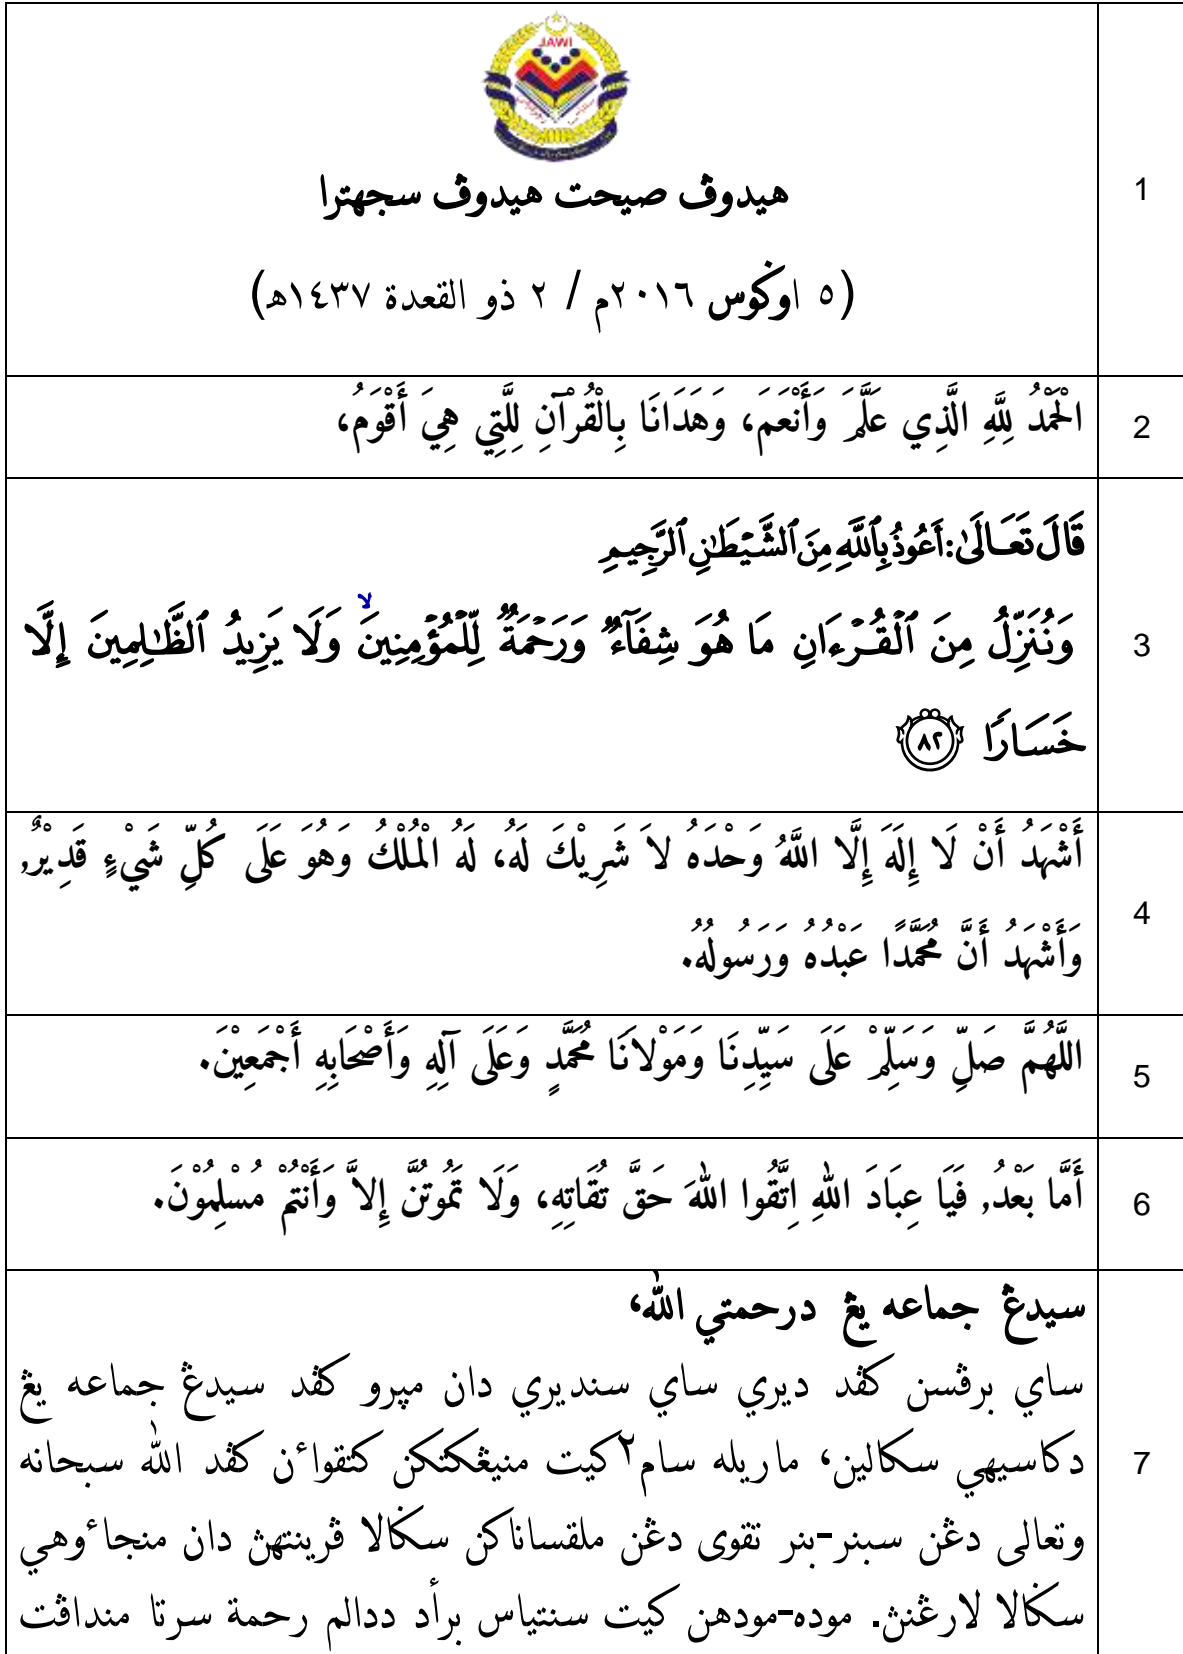 JAWI
هيدوڤ صيحت هيدوڤ سجهترا
(٥ اوݢوس ٢٠١٦م / ٢ ذو القعدة ١٤٣٧هـ)
1
الْحَمْدُ لِلَّهِ الَّذِي عَلَّمَ وَأَنْعَمَ، وَهَدَانَا بِالْقُرْآنِ لِلَّتِي هِيَ أَقْوَمُ،
2
قَالَ تَعَالَىٰ: أَعُوذُ بِٱللَّهِ مِنَ ٱلشَّيْطَٰنِ ٱلرَّجِيمِ
وَنُنَزِّلُ مِنَ ٱلْقُرْءَانِ مَا هُوَ شِفَآءٌ وَرَحْمَةٌ لِّلْمُؤْمِنِينَ ۙ وَلَا يَزِيدُ ٱلظَّٰلِمِينَ إِلَّا
خَسَارًا ﴿٨٢﴾
3
أَشْهَدُ أَنْ لَا إِلَهَ إِلَّا اللَّهُ وَحْدَهُ لاَ شَرِيْكَ لَهُ، لَهُ الْمُلْكُ وَهُوَ عَلَى كُلِّ شَيْءٍ قَدِيْرٌ,
وَأَشْهَدُ أَنَّ مُحَمَّدًا عَبْدُهُ وَرَسُولُهُ.
4
اللَّهُمَّ صَلِّ وَسَلِّمْ عَلَى سَيِّدِنَا وَمَوْلاَنَا مُحَمَّدٍ وَعَلَى آلِهِ وَأَصْحَابِهِ أَجْمَعِيْنَ.
5
أَمَّا بَعْدُ, فَيَا عِبَادَ اللهِ اِتَّقُوا اللهَ حَقَّ تُقَاتِهِ، وَلَا تَمُوتُنَّ إِلاَّ وَأَنْتُمْ مُسْلِمُوْنَ.
6
سيدڠ جماعه يڠ درحمتي الله،
ساي برڤسن كڤد ديري ساي سنديري دان مڽرو كڤد سيدڠ جماعه يڠ
دكاسيهي سكالين، ماريله سام٢ كيت منيڠكتكن كتقواءن كڤد الله سبحانه
وتعالى دڠن سبنر-بنر تقوى دڠن ملقساناكن سݢالا ڤرينتهڽ دان منجاءوهي
سݢالا لارڠنڽ. موده-مودهن كيت سنتياس برأد ددالم رحمة سرتا منداڤت
7